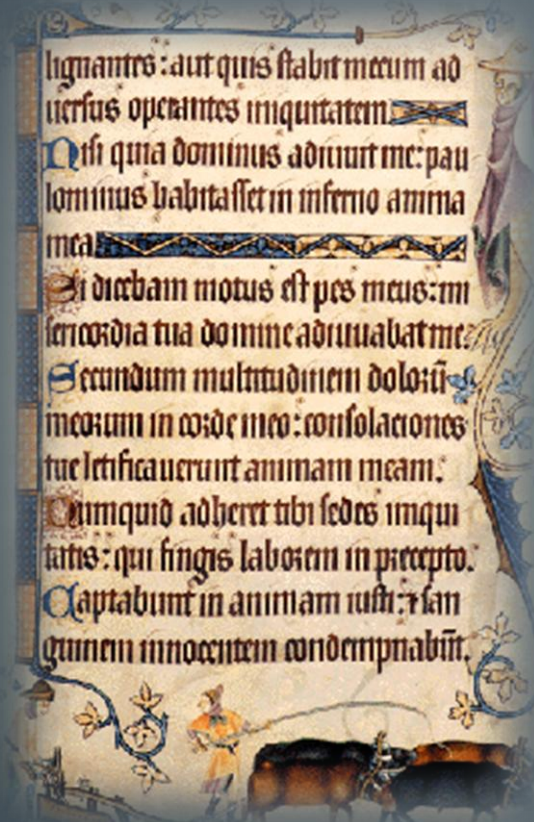 lignantes : aut quis stabit mecum ad
uersus operantes iniquitatem
Nisi quia dominus adiuuit me : pau
lominus habitasset in inferno anima
mea
Si dicebam motus est pes meus : mi
sericordia tua domine adiuuabat me
Secundum multitudinem dolorū
meorum in corde meo : consolaciones
tue letificauerunt animam meam .
Numquid adheret tibi sedes iniqui
tatis : qui fingis laborem in precepto .
Captabunt in animam iusti : ⁊ san
guinem innocentem condempnabūt .